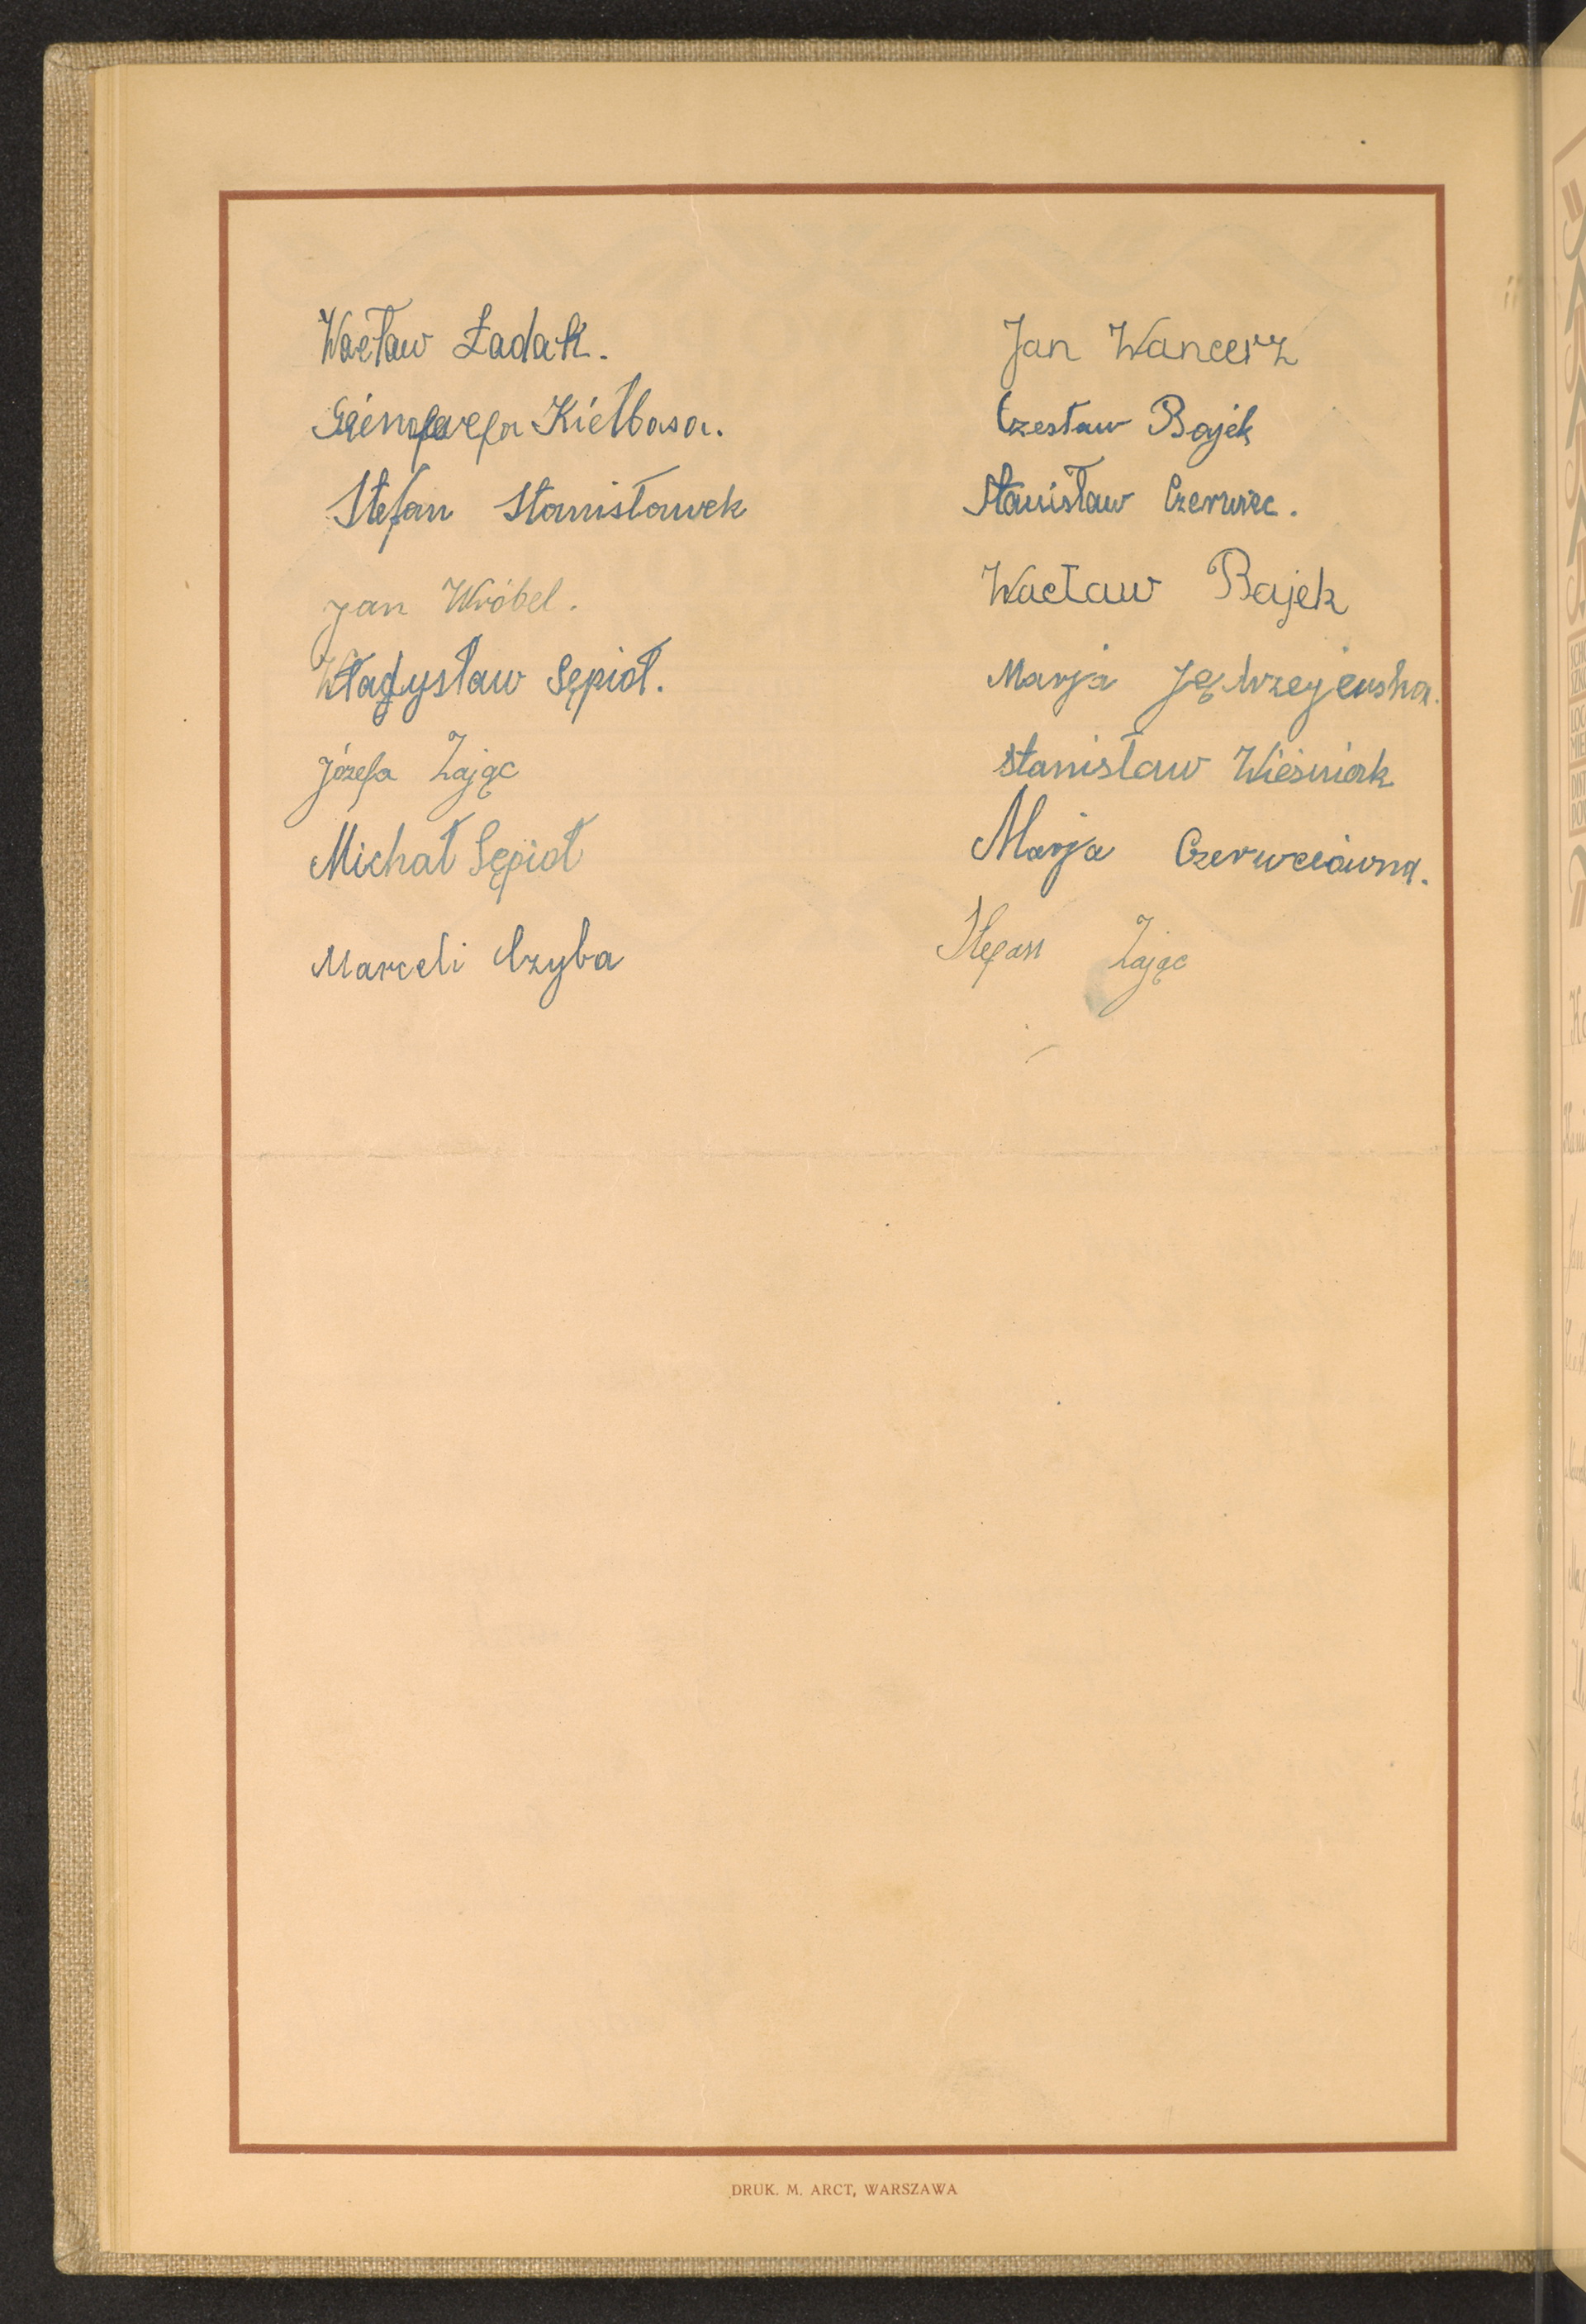 Wacław Ładak.
Gienofewefa Kiełbasa.
Stefan Stanisławek
Jan Wróbel.
Władysław Sępioł.
Józefa Zając
Michał Sępioł
Marceli Czyba
Jan Wancerz
Czesław Bajek
Stanisław Czerwiec.
Wacław Bajek
Marja Jędrzejewska.
Stanisław Wieśniak
Marja Czerwcówna.
Stefan Zając
DRUK. M. ARCT, WARSZAWA